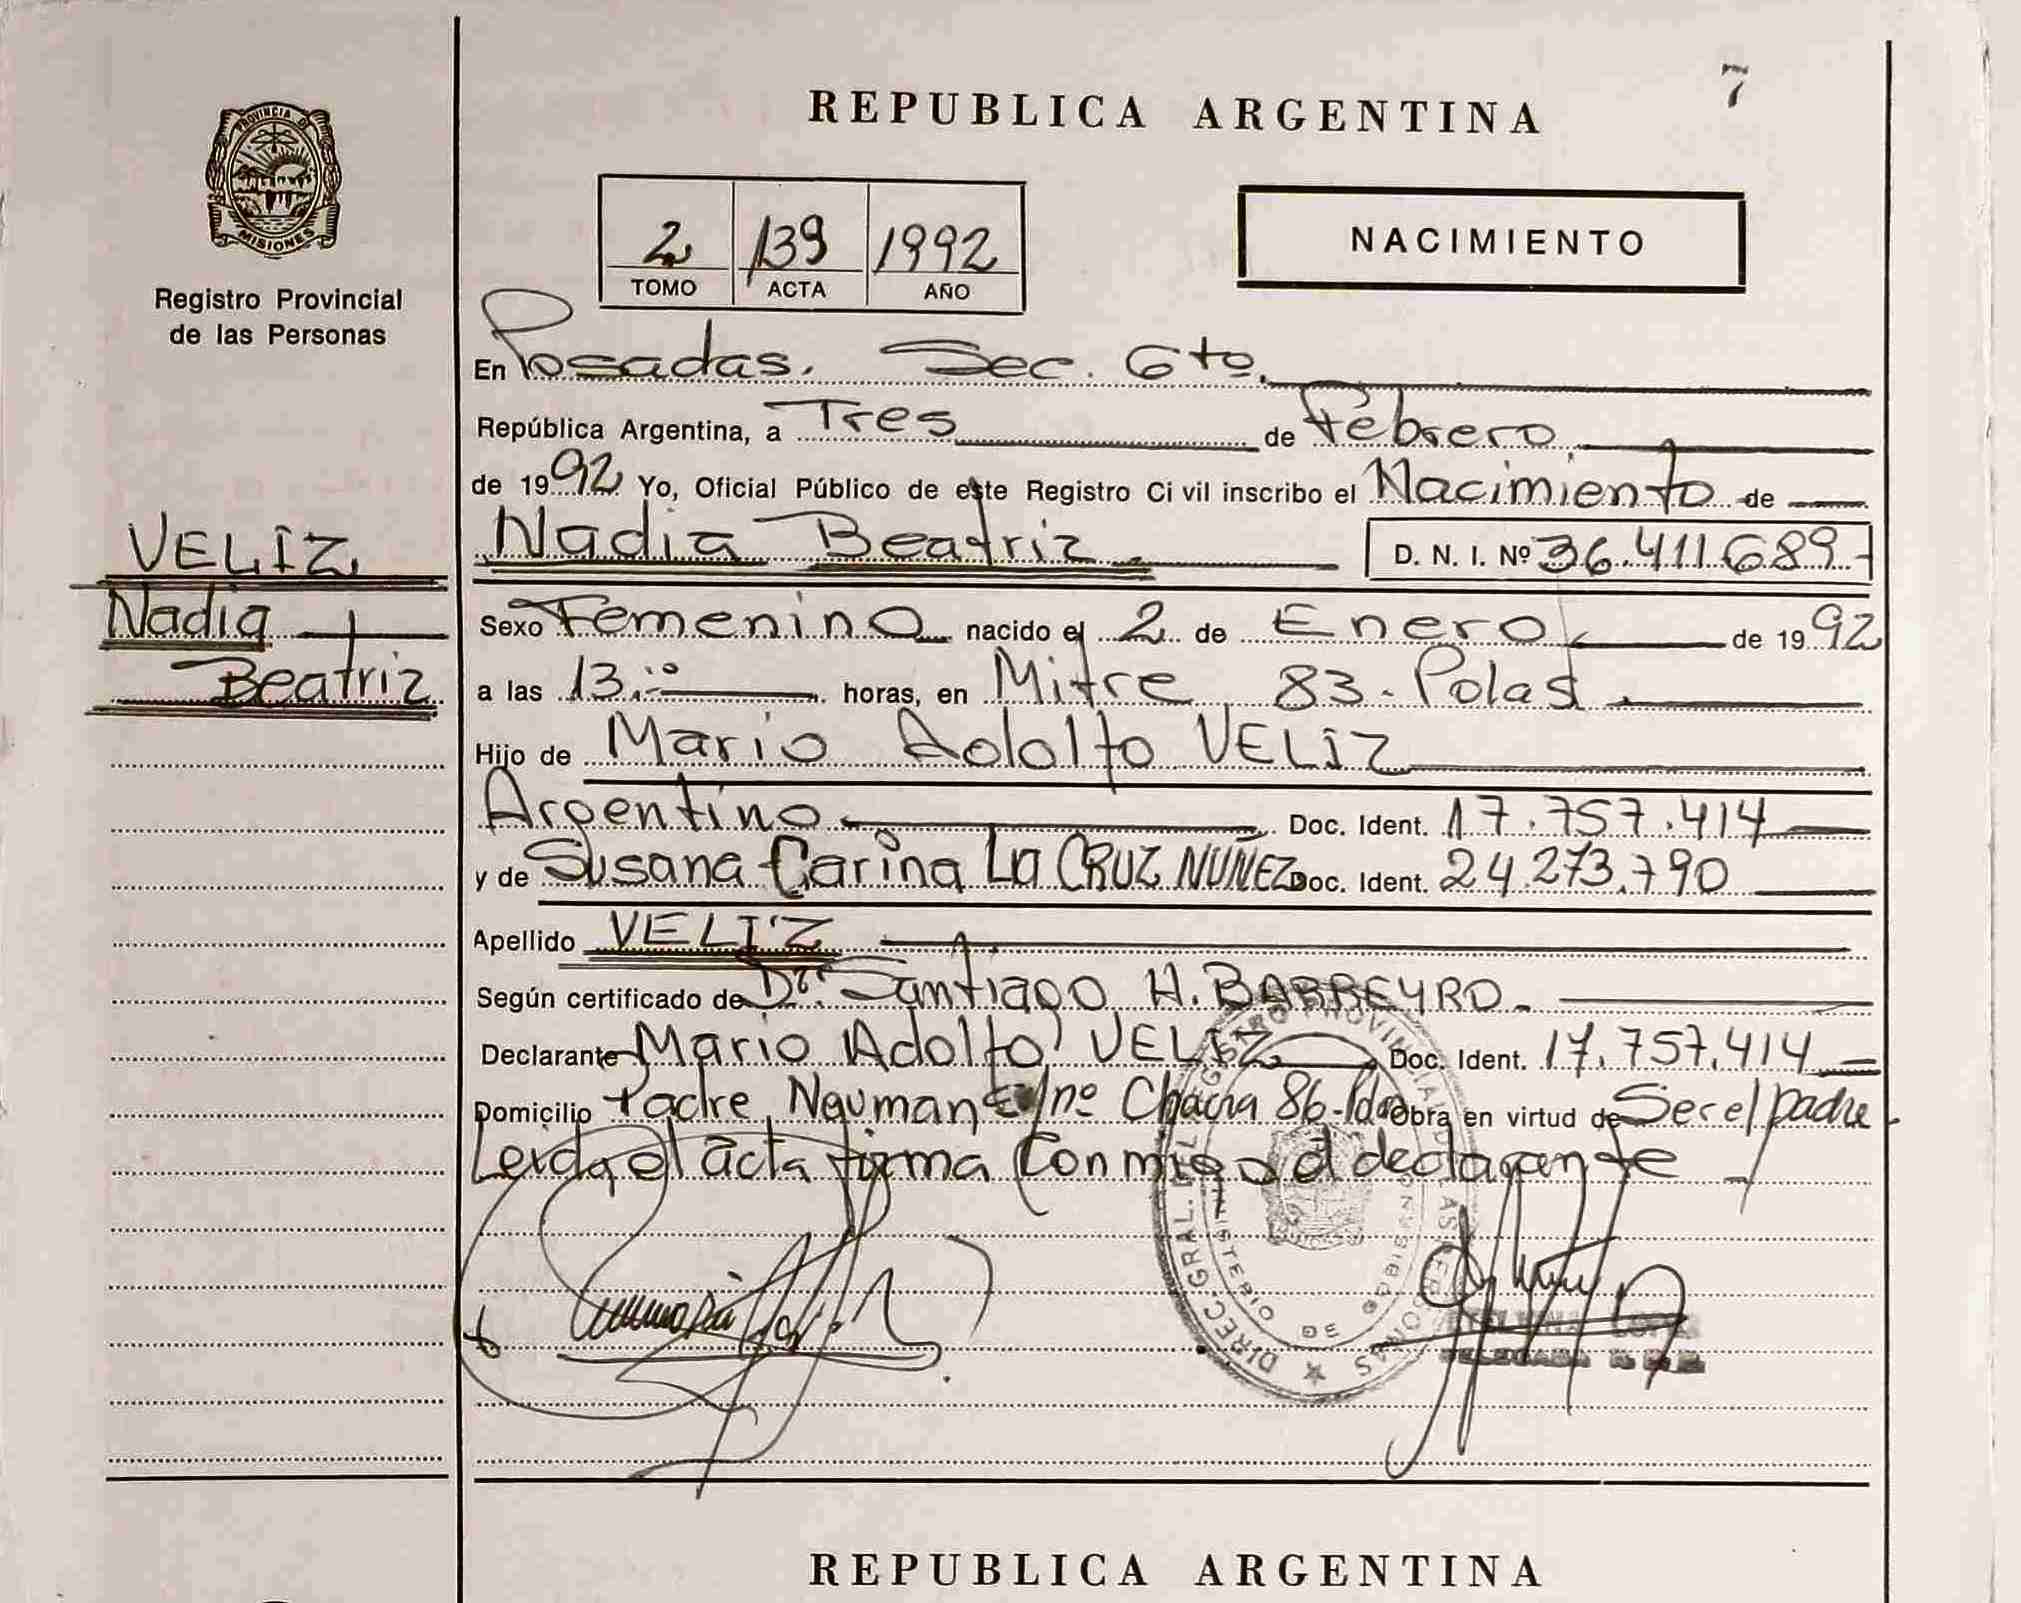 7
REPUBLICA ARGENTINA
PROVINCIA DE
MISIONES
Registro Provincial
de las Personas
2 139 1992
TOMO ACTA AÑO
NACIMIENTO
En Posadas. Sec. 6tº.
República Argentina, a Tres de Febrero
de 1992 Yo, Oficial Público de este Registro Civil inscribo el Nacimiento de
VELIZ
Nadia
Beatriz
Nadia Beatriz D. N. I. Nº 36.411.689.-
Sexo Femenino nacido el 2 de Enero de 1992
a las 13.- horas, en Mitre 83- Pdas
Hijo de Mario Adolfo VELIZ
Argentino Doc. Ident. 17.757.414
y de Susana Carina La CRUZ NUÑEZ Doc. Ident. 24.273.790
Apellido VELIZ
Según certificado de Dr. Santiago H. BARREYRO.
Declarante Mario Adolfo VELIZ Doc. Ident. 17.757.414
Domicilio Padre Neuman s/nº Chacra 86- obra en virtud de Ser el padre
Leida el acta firma Conmigo el declarante
DIREC. GRAL. REGISTRO PROVINCIAL DE LAS PERSONAS
MINISTERIO DE GOBIERNO
REPUBLICA ARGENTINA